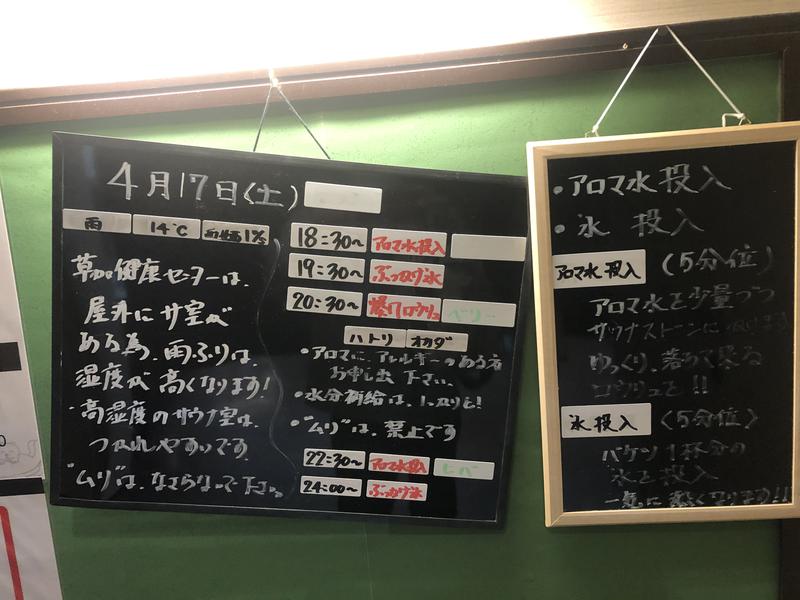 4月17日(土)
雨
14℃
18:30~ アロマ水投入
19:30~ ぶっかけ氷
20:30~ 爆風ロウリュ ベリー
ハトリ オカダ
草加健康センターは、
屋外にサ室が
ある為、雨ふりは、
湿度が高くなります!
・高湿度のサウナ室は、
つかれやすいです
"ムリ"は、なさらないで下さい。
・アロマに、アレルギーのある方
お申し出下さい、
・水分補給は、しっかりと!
・"ムリ"は、禁止です
22:30~ アロマ水投入 ヒバ
24:00~ ぶっかけ氷
・アロマ水投入
・氷 投入
アロマ水投入 (5分位)
アロマ水を少量づつ
サウナストーンに
ゆっくり、落ちて来る
ロウリュと!!
氷投入 (5分位)
バケツ1杯分の
氷を投入
一気に熱くなります!!